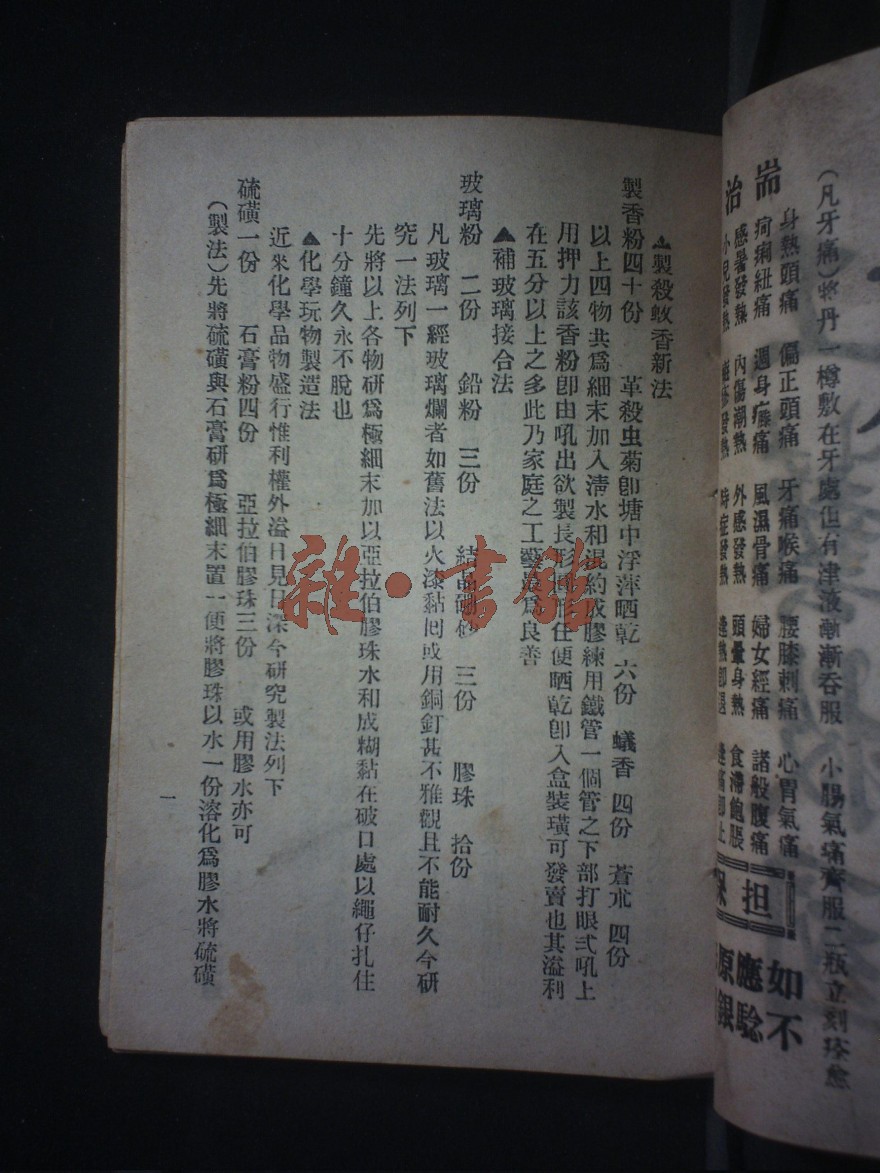 (凡牙痛)將丹一樽敷在牙處但有津液漸漸吞服 小腸氣痛齊服二瓶立刻痊愈
耑治
身熱頭痛 偏正頭痛 牙痛喉痛 腰膝刺痛 心胃氣痛
痾痢紐痛 週身痛 風濕骨痛 婦女經痛 諸般腹痛
感暑發熱 內傷潮熱 外感發熱 頭暈身熱 食滯飽脹
小兒發熱 發熱 時症發熱
担保
如不
應騐
原銀
▲製殺蚊香新法
製香粉四十份 革殺虫菊卽塘中浮萍晒乾 六份 蟻香 四份 蒼朮 四份
以上四物共爲細末加入淸水和混約成膠練用鐵管一個管之下部打眼弍吼上
用押力該香粉卽由吼出欲製長形圓形任便晒乾卽入盒裝璜可發賣也其溢利
在五分以上之多此乃家庭之工藝最爲良善
▲補玻璃接合法
玻璃粉 二份 鉛粉 三份 結晶硼砂 三份 膠珠 拾份
凡玻璃一經玻璃爛者如舊法以火漆黏囘或用銅釘甚不雅觀且不能耐久今研
究一法列下
先將以上各物研爲極細末加以亞拉伯膠珠水和成糊黏在破口處以繩仔扎住
十分鐘久永不脫也
▲化學玩物製造法
近來化學品物盛行惟利權外溢日見日深今研究製法列下
硫磺一份 石膏粉四份 亞拉伯膠珠三份 或用膠水亦可
(製法)先將硫磺與石膏研爲極細末置一便將膠珠以水一份溶化爲膠水將硫磺
一
雜·書館